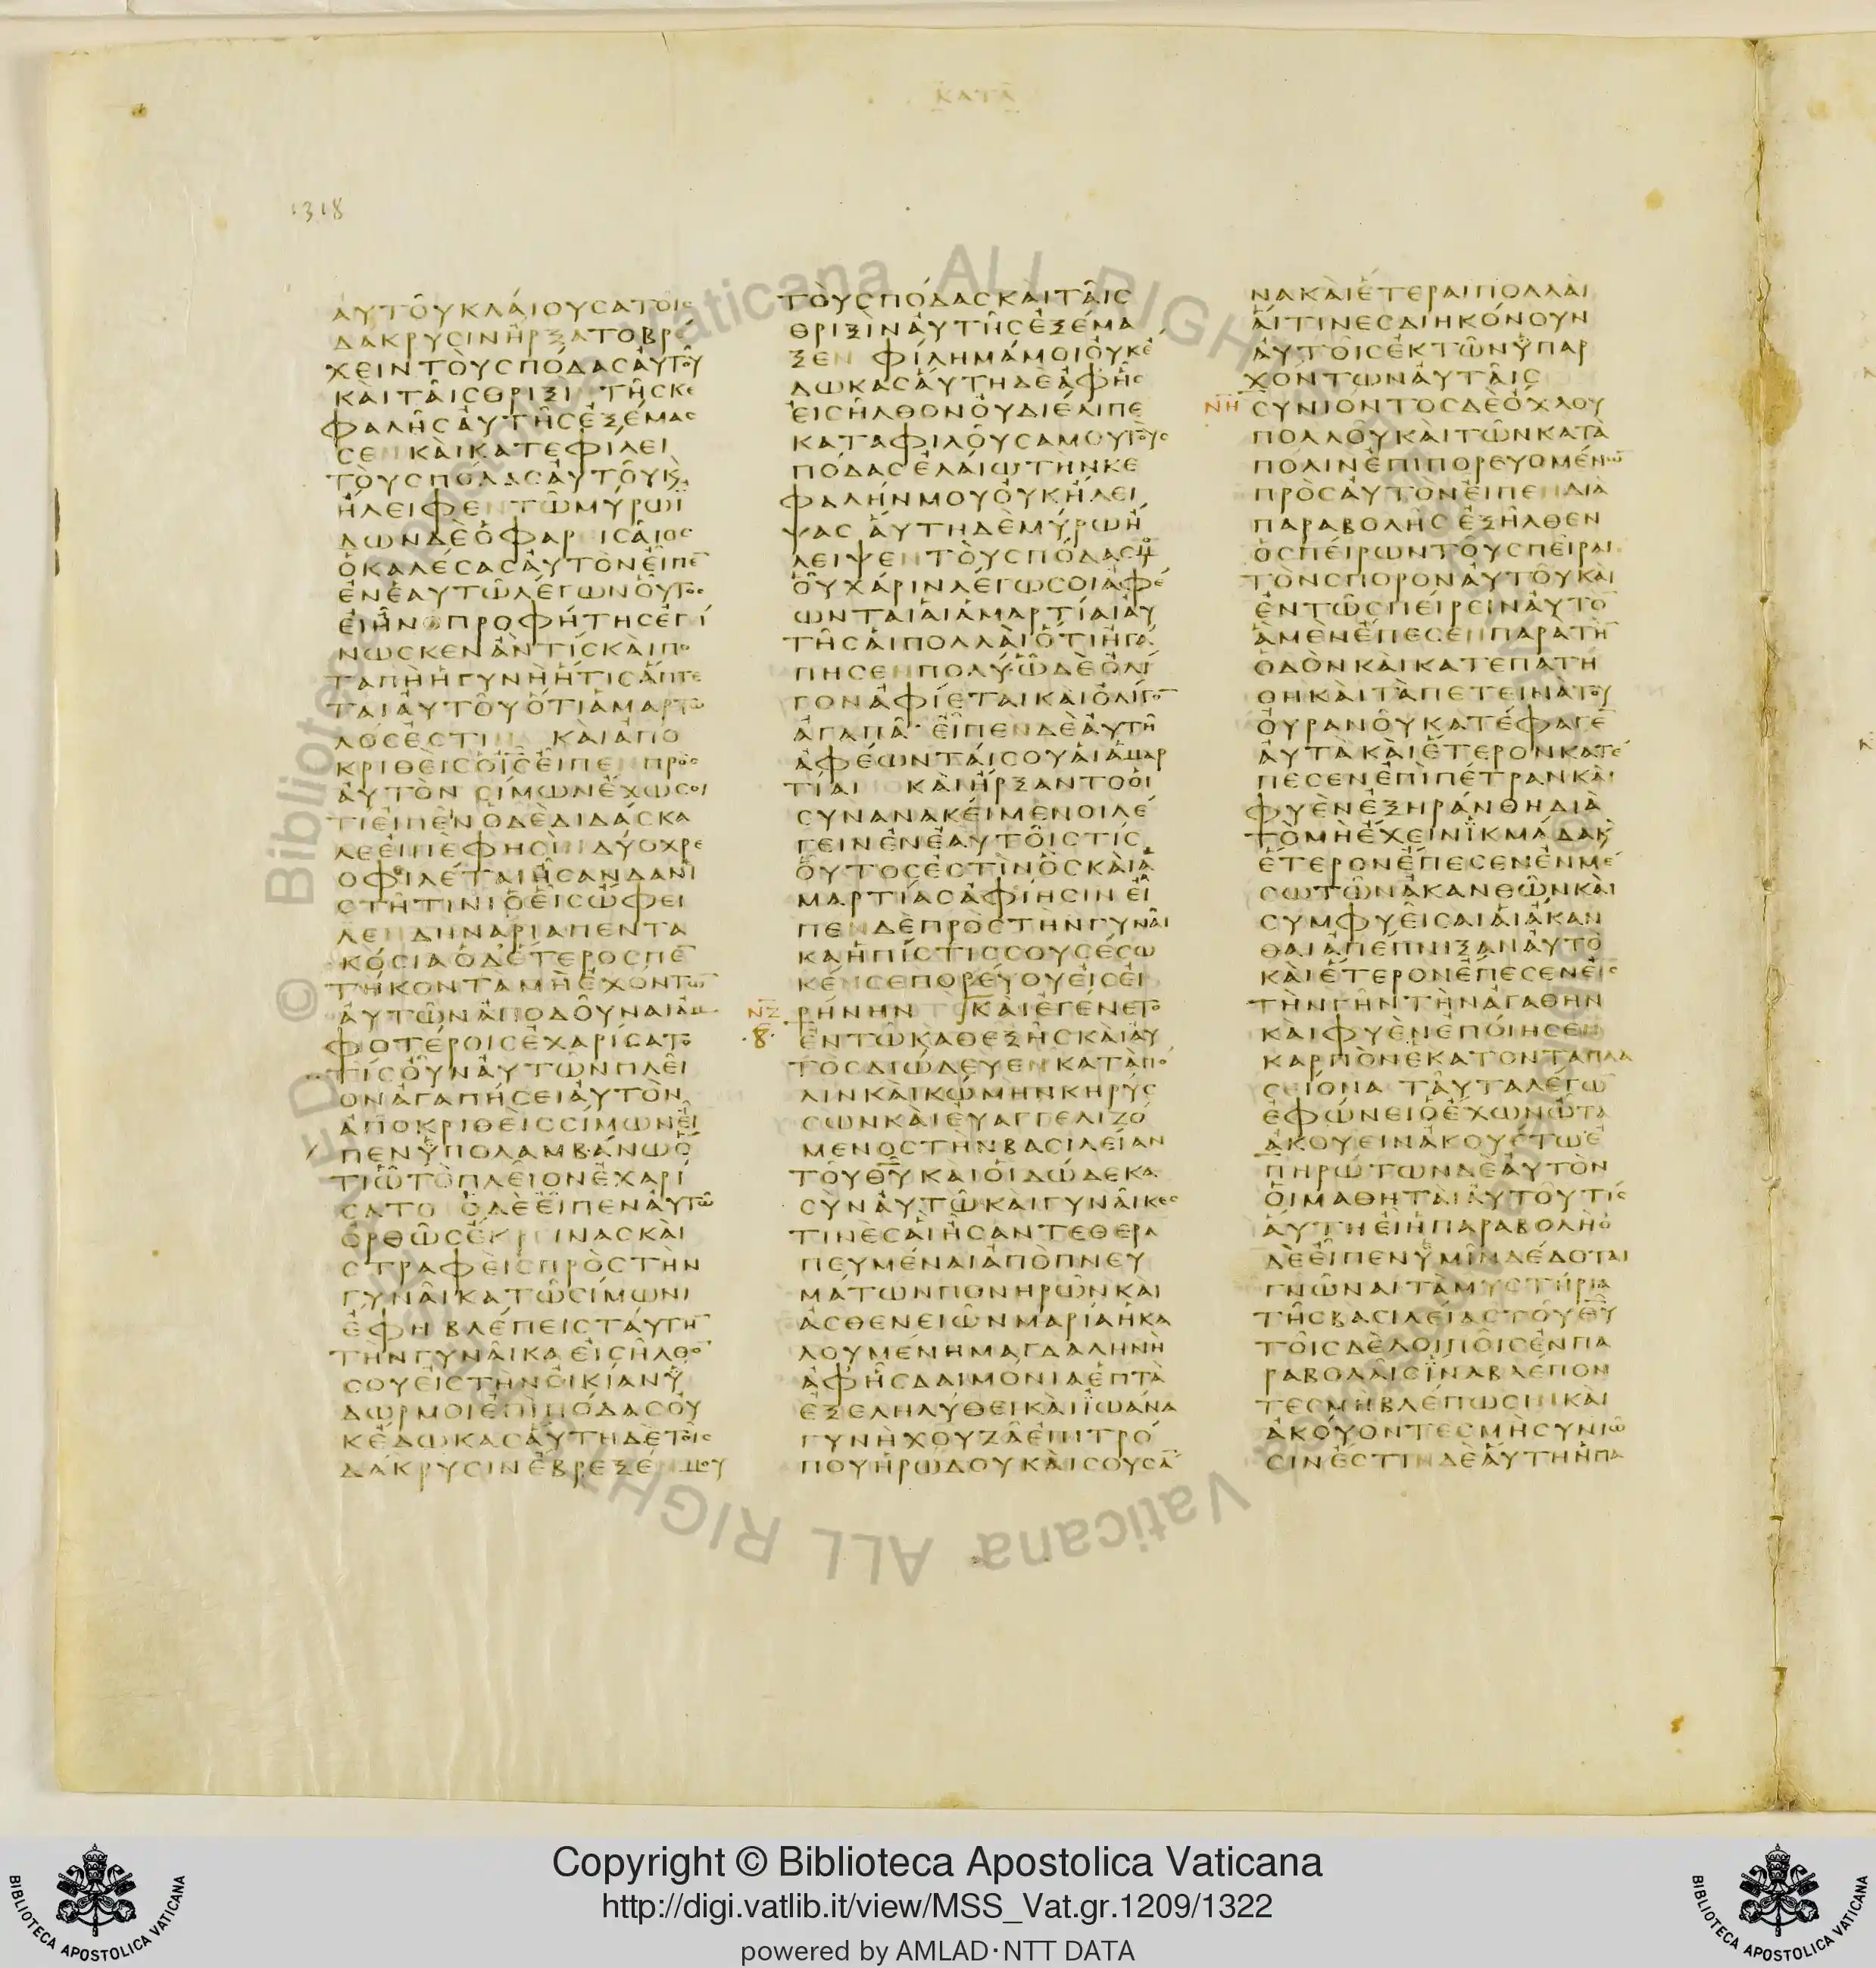 ΚΑΤΑ
1318
ΑΥΤΟΥΚΛΑΙΟΥΣΑΤΟΙΣ
ΔΑΚΡΥΣΙΝΗΡΞΑΤΟΒΡΕ
ΧΕΙΝΤΟΥΣΠΟΔΑΣΑΥΤΟΥ
ΚΑΙΤΑΙΣΘΡΙΞΙ ΤΗΣΚΕ
ΦΑΛΗΣΑΥΤΗΣΕΞΕΜΑΣ
ΣΕΝ ΚΑΙΚΑΤΕΦΙΛΕΙ
ΤΟΥΣΠΟΔΑΣΑΥΤΟΥΚ
ΗΛΕΙΦΕΝΤΩΜΥΡΩΙ
ΔΩΝΔΕΟΦΑΡΕΙΣΑΙΟΣ
ΟΚΑΛΕΣΑΣΑΥΤΟΝΕΙΠΕ
ΕΝΕΑΥΤΩΛΕΓΩΝΟΥΤΟΣ
ΕΙΗΝΟΠΡΟΦΗΤΗΣΕΓΙ
ΝΩΣΚΕΝΑΝΤΙΣΚΑΙΠΟ
ΤΑΠΗΗΓΥΝΗΗΤΙΣΑΠΤΕ
ΤΑΙΑΥΤΟΥΟΤΙΑΜΑΡΤΩ
ΛΟΣΕΣΤΙΝ ΚΑΙΑΠΟ
ΚΡΙΘΕΙΣΟΙΣΕΙΠΕΝΠΡΟΣ
ΑΥΤΟΝ ΣΙΜΩΝΕΧΩΣΟΙ
ΤΙΕΙΠΕΙΝΟΔΕΔΙΔΑΣΚΑ
ΛΕΕΙΠΕΦΗΣΙΝΔΥΟΧΡΕ
ΟΦΙΛΕΤΑΙΗΣΑΝΔΑΝΙ
ΣΤΗΤΙΝΙΟΕΙΣΩΦΕΙ
ΛΕΝΔΗΝΑΡΙΑΠΕΝΤΑ
ΚΟΣΙΑΟΔΕΤΕΡΟΣΠΕ
ΤΗΚΟΝΤΑΜΗΕΧΟΝΤΩ
ΑΥΤΩΝΑΠΟΔΟΥΝΑΙΑΜ
ΦΟΤΕΡΟΙΣΕΧΑΡΙΣΑΤΟ
ΤΙΣΟΥΝΑΥΤΩΝΠΛΕΙ
ΟΝΑΓΑΠΗΣΕΙΑΥΤΟΝ
ΑΠΟΚΡΙΘΕΙΣΣΙΜΩΝΕΙ
ΠΕΝΥΠΟΛΑΜΒΑΝΩΟ
ΤΙΩΤΟΠΛΕΙΟΝΕΧΑΡΙ
ΣΑΤΟ ΟΔΕΕΙΠΕΝΑΥΤΩ
ΟΡΘΩΣΕΚΡΕΙΝΑΣΚΑΙ
ΣΤΡΑΦΕΙΣΠΡΟΣΤΗΝ
ΓΥΝΑΙΚΑΤΩΣΙΜΩΝΙ
ΕΦΗ ΒΛΕΠΕΙΣΤΑΥΤΗ
ΤΗΝΓΥΝΑΙΚΑΕΙΣΗΛΘΟ
ΣΟΥΕΙΣΤΗΝΟΙΚΙΑΝΥ
ΔΩΡΜΟΙΕΠΙΠΟΔΑΣΟΥ
ΚΕΔΩΚΑΣΑΥΤΗΔΕΤΟΙΣ
ΔΑΚΡΥΣΙΝΕΒΡΕΞΕΝΜΟΥ
ΤΟΥΣΠΟΔΑΣΚΑΙΤΑΙΣ
ΘΡΙΞΙΝΑΥΤΗΣΕΞΕΜΑ
ΞΕΝ ΦΙΛΗΜΑΜΟΙΟΥΚΕ
ΔΩΚΑΣΑΥΤΗΔΕΑΦΗΣ
ΕΙΣΗΛΘΟΝΟΥΔΙΕΛΙΠΕ
ΚΑΤΑΦΙΛΟΥΣΑΜΟΥΤΟΥΣ
ΠΟΔΑΣΕΛΑΙΩΤΗΝΚΕ
ΦΑΛΗΝΜΟΥΟΥΚΗΛΕΙ
ΨΑΣ ΑΥΤΗΔΕΜΥΡΩΗ
ΛΕΙΨΕΝΤΟΥΣΠΟΔΑΣΜΟΥ
ΟΥΧΑΡΙΝΛΕΓΩΣΟΙΑΦΕ
ΩΝΤΑΙΑΙΑΜΑΡΤΙΑΙΑΥ
ΤΗΣΑΙΠΟΛΛΑΙΟΤΙΗΓΑ
ΠΗΣΕΝΠΟΛΥ·ΩΔΕΟΛΙ
ΓΟΝΑΦΙΕΤΑΙΚΑΙΟΛΙΓΟ
ΑΓΑΠΑ ΕΙΠΕΝΔΕΑΥΤΗ
ΑΦΕΩΝΤΑΙΣΟΥΑΙΑΜΑΡ
ΤΙΑΙ ΚΑΙΗΡΞΑΝΤΟΟΙ
ΣΥΝΑΝΑΚΕΙΜΕΝΟΙΛΕ
ΓΕΙΝΕΝΕΑΥΤΟΙΣΤΙΣ
ΟΥΤΟΣΕΣΤΙΝΟΣΚΑΙΑ
ΜΑΡΤΙΑΣΑΦΙΗΣΙΝΕΙ
ΠΕΝΔΕΠΡΟΣΤΗΝΓΥΝΑΙ
ΚΑΗΠΙΣΤΙΣΣΟΥΣΕΣΩ
ΚΕΝΣΕΠΟΡΕΥΟΥΕΙΣΕΙ
ΝΖ ΡΗΝΗΝ ΚΑΙΕΓΕΝΕΤΟ
·8· ΕΝΤΩΚΑΘΕΞΗΣΚΑΙΑΥ
ΤΟΣΔΙΩΔΕΥΕΝΚΑΤΑΠΟ
ΛΙΝΚΑΙΚΩΜΗΝΚΗΡΥΣ
ΣΩΝΚΑΙΕΥΑΓΓΕΛΙΖΟ
ΜΕΝΟΣΤΗΝΒΑΣΙΛΕΙΑΝ
ΤΟΥΘΥΚΑΙΟΙΔΩΔΕΚΑ
ΣΥΝΑΥΤΩΚΑΙΓΥΝΑΙΚΕΣ
ΤΙΝΕΣΑΙΗΣΑΝΤΕΘΕΡΑ
ΠΕΥΜΕΝΑΙΑΠΟΠΝΕΥ
ΜΑΤΩΝΠΟΝΗΡΩΝΚΑΙ
ΑΣΘΕΝΕΙΩΝΜΑΡΙΑΗΚΑ
ΛΟΥΜΕΝΗΜΑΓΔΑΛΗΝΗ
ΑΦΗΣΔΑΙΜΟΝΙΑΕΠΤΑ
ΕΞΕΛΗΛΥΘΕΙΚΑΙΙΩΑΝΑ
ΓΥΝΗΧΟΥΖΑΕΠΙΤΡΟ
ΠΟΥΗΡΩΔΟΥΚΑΙΣΟΥΣΑ
ΝΑΚΑΙΕΤΕΡΑΙΠΟΛΛΑΙ
ΑΙΤΙΝΕΣΔΙΗΚΟΝΟΥΝ
ΑΥΤΟΙΣΕΚΤΩΝΥΠΑΡ
ΧΟΝΤΩΝΑΥΤΑΙΣ
ΝΗ ΣΥΝΙΟΝΤΟΣΔΕΟΧΛΟΥ
ΠΟΛΛΟΥΚΑΙΤΩΝΚΑΤΑ
ΠΟΛΙΝΕΠΙΠΟΡΕΥΟΜΕΝΩ
ΠΡΟΣΑΥΤΟΝΕΙΠΕΝΔΙΑ
ΠΑΡΑΒΟΛΗΣΕΞΗΛΘΕΝ
ΟΣΠΕΙΡΩΝΤΟΥΣΠΕΙΡΑΙ
ΤΟΝΣΠΟΡΟΝΑΥΤΟΥΚΑΙ
ΕΝΤΩΣΠΕΙΡΕΙΝΑΥΤΟ
ΑΜΕΝΕΠΕΣΕΝΠΑΡΑΤΗ
ΟΔΟΝΚΑΙΚΑΤΕΠΑΤΗ
ΘΗΚΑΙΤΑΠΕΤΕΙΝΑΤΟΥ
ΟΥΡΑΝΟΥΚΑΤΕΦΑΓΕ
ΑΥΤΑΚΑΙΕΤΕΡΟΝΚΑΤΕ
ΠΕΣΕΝΕΠΙΠΕΤΡΑΝΚΑΙ
ΦΥΕΝΕΞΗΡΑΝΘΗΔΙΑ
ΤΟΜΗΕΧΕΙΝΙΚΜΑΔΑΚ
ΕΤΕΡΟΝΕΠΕΣΕΝΕΝΜΕ
ΣΩΤΩΝΑΚΑΝΘΩΝΚΑΙ
ΣΥΜΦΥΕΙΣΑΙΑΙΑΚΑΝ
ΘΑΙΑΠΕΠΝΙΞΑΝΑΥΤΟ
ΚΑΙΕΤΕΡΟΝΕΠΕΣΕΝΕΙΣ
ΤΗΝΓΗΝΤΗΝΑΓΑΘΗΝ
ΚΑΙΦΥΕΝΕΠΟΙΗΣΕΝ
ΚΑΡΠΟΝΕΚΑΤΟΝΤΑΠΛΑ
ΣΕΙΟΝΑ ΤΑΥΤΑΛΕΓΩ
ΕΦΩΝΕΙΟΕΧΩΝΩΤΑ
ΑΚΟΥΕΙΝΑΚΟΥΕΤΩΕ
ΠΗΡΩΤΩΝΔΕΑΥΤΟΝ
ΟΙΜΑΘΗΤΑΙΑΥΤΟΥΤΙΣ
ΑΥΤΗΕΙΗΠΑΡΑΒΟΛΗΟ
ΔΕΕΙΠΕΝΥΜΙΝΔΕΔΟΤΑΙ
ΓΝΩΝΑΙΤΑΜΥΣΤΗΡΙΑ
ΤΗΣΒΑΣΙΛΕΙΑΣΤΟΥΘΥ
ΤΟΙΣΔΕΛΟΙΠΟΙΣΕΝΠΑ
ΡΑΒΟΛΑΙΣΙΝΑΒΛΕΠΟΝ
ΤΕΣΜΗΒΛΕΠΩΣΙΝΚΑΙ
ΑΚΟΥΟΝΤΕΣΜΗΣΥΝΙΩ
ΣΙΝΕΣΤΙΝΔΕΑΥΤΗΗΠΑ
© Biblioteca Apostolica Vaticana ALL RIGHTS RESERVED
Copyright © Biblioteca Apostolica Vaticana
http://digi.vatlib.it/view/MSS_Vat.gr.1209/1322
powered by AMLAD·NTT DATA
BIBLIOTECA APOSTOLICA VATICANA
BIBLIOTECA APOSTOLICA VATICANA